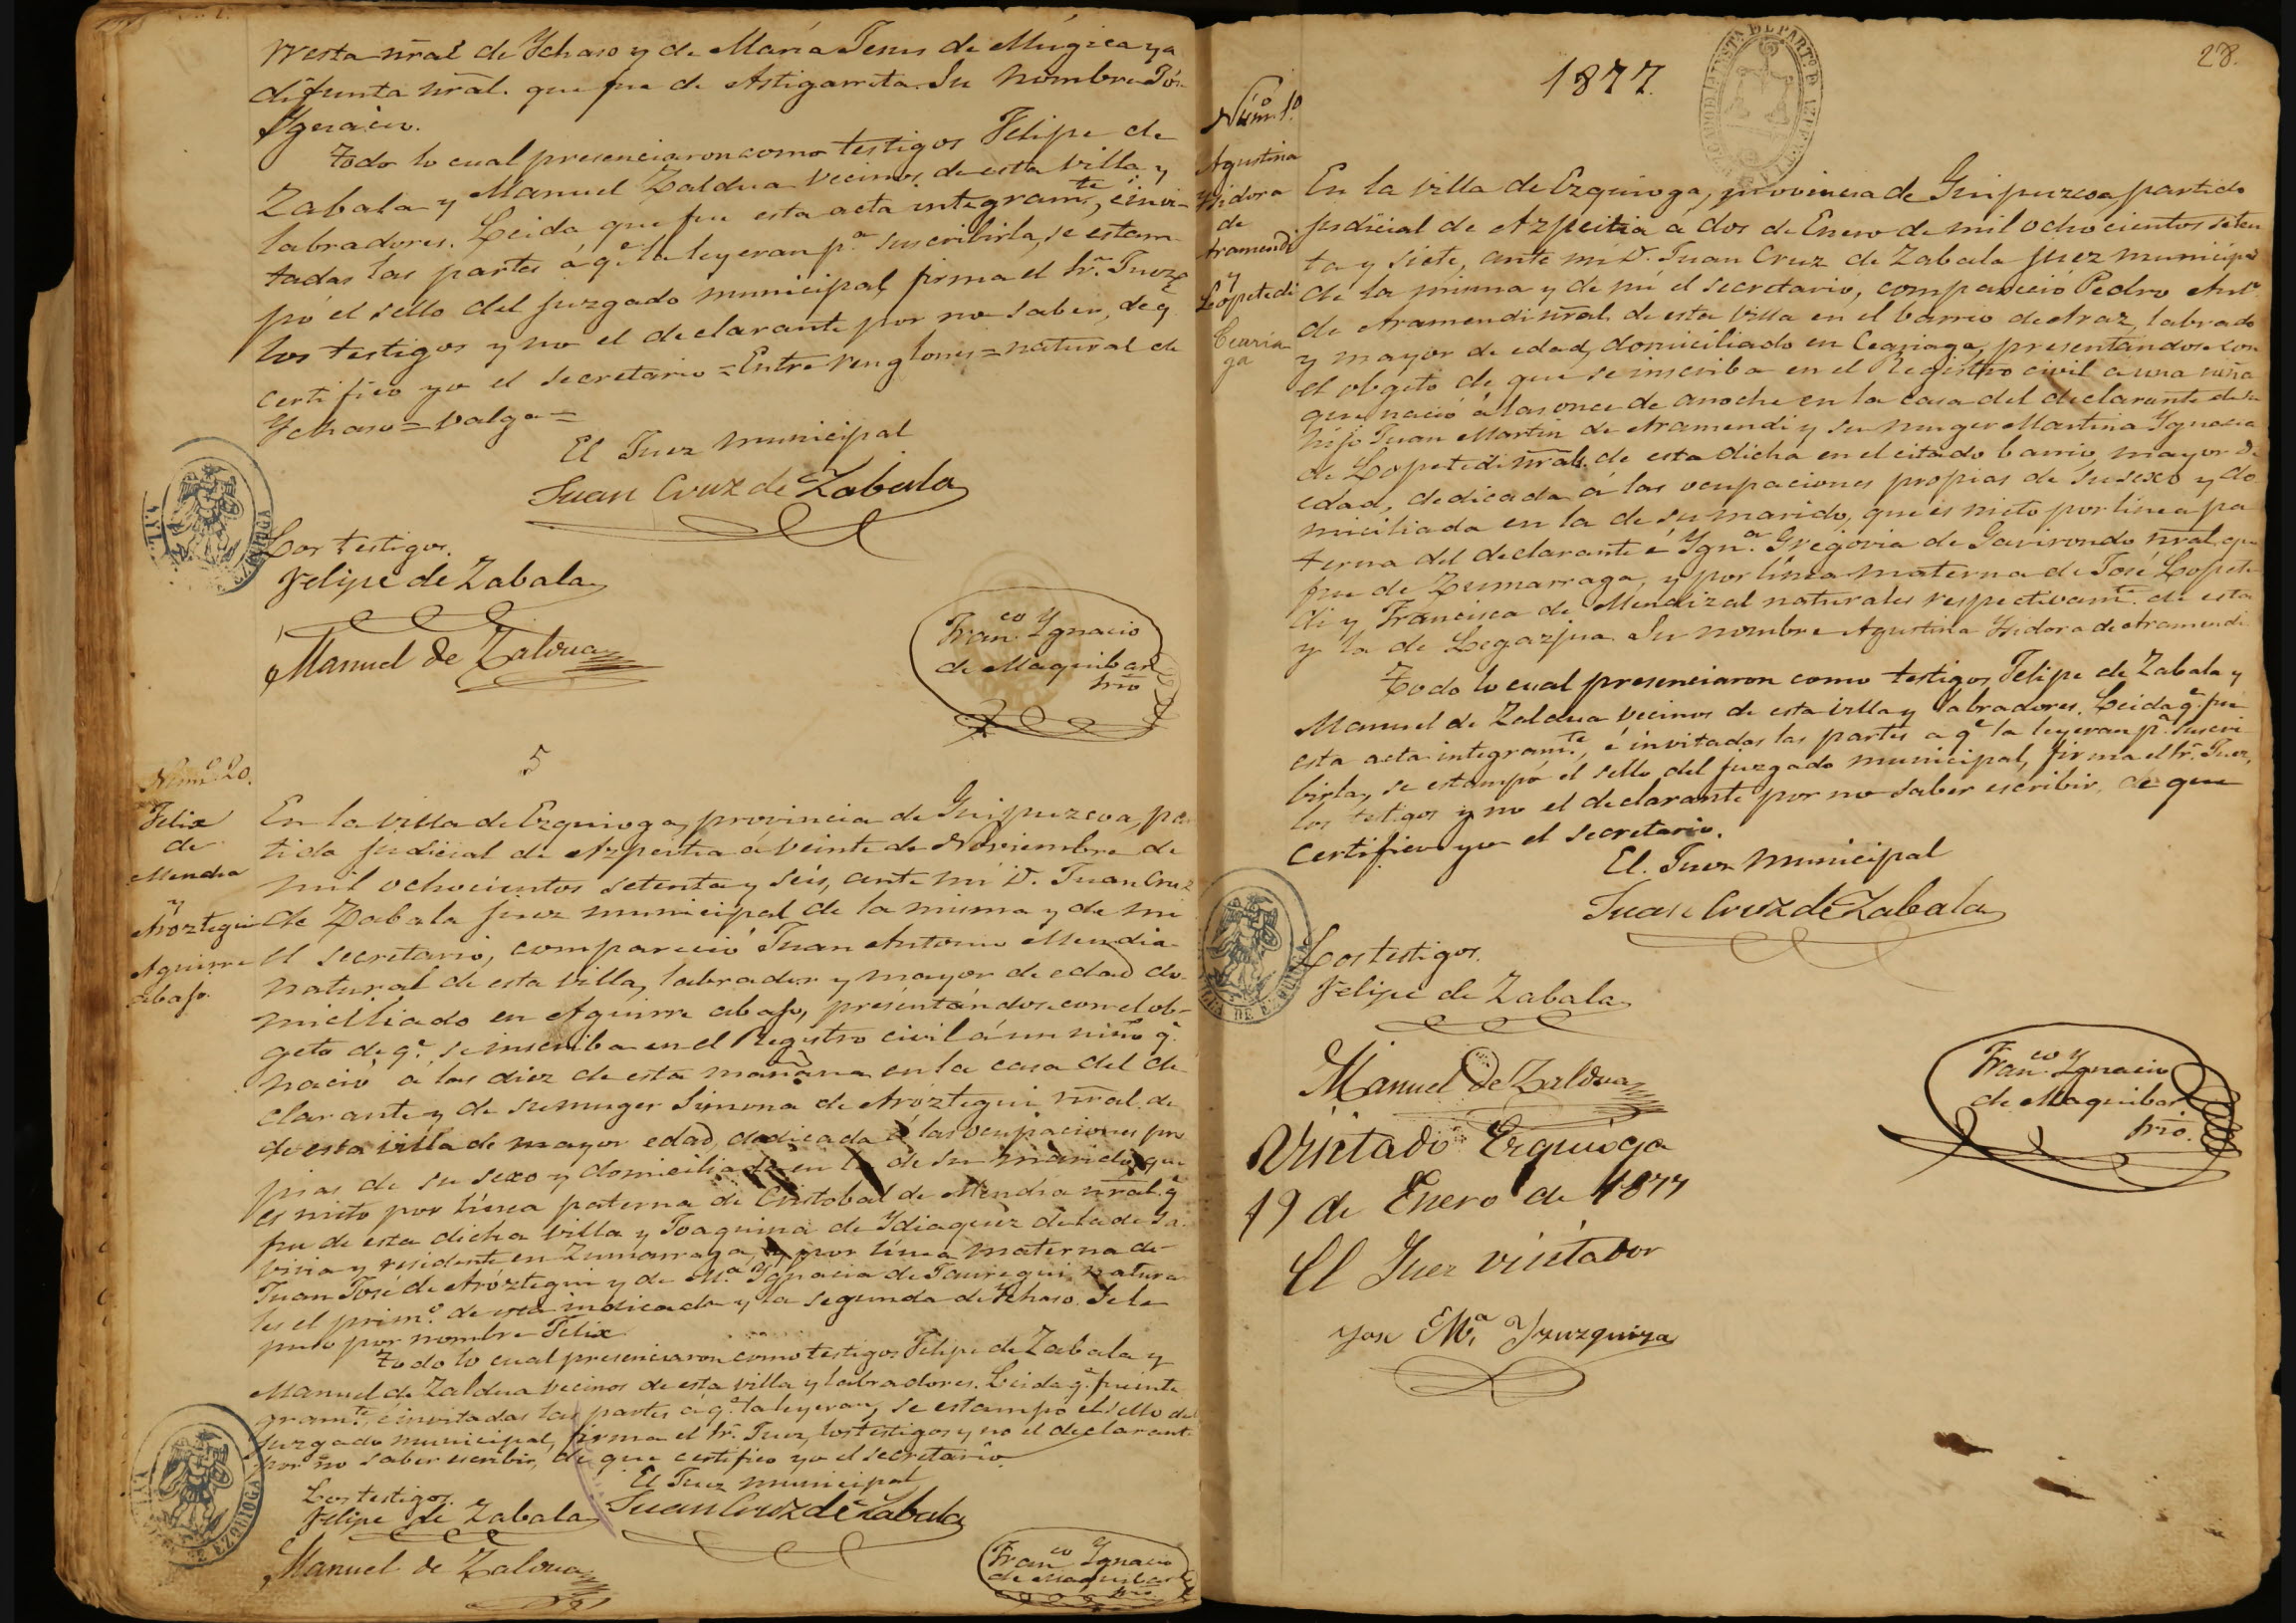 Westa nral de Ychaso y de María Jesus de Múgica ya
difunta nral. que fue de Astigarreta. Su nombre Jóse
Ygnacio.
Todo lo cual presenciaron como testigos Felipe de
Zabala y Manuel Zaldua vecinos de esta villa y
labradores. Leida que fue esta acta integramte, é invi-
tadas las partes á qe la leyeran pa suscribirla, se estam-
pó el sello del juzgado municipal, firma el Sr. Juez
los testigos y no el declarante por no saber, de qe
certifico yo el secretario = Entre renglones = natural de
Ychaso = valga =
El Juez municipal
Juan Cruz de Zabala
Los testigos.
Felipe de Zabala
Manuel de Zaldua
Franco Ygnacio
de Maquibar
Srio
5
Numo 20.
Felix
de
Mendia
y
Aroztegui
Aguirre
abajo.
En la villa de Ezquioga, provincia de Guipuzcoa, par
tido judicial de Azpeitia á veinte de Noviembre de
mil ochocientos setenta y seis, ante mi D. Juan Cruz
de Zabala juez municipal de la misma y de mi
el secretario, compareció Juan Antonio Mendia
natural de esta villa, labrador y mayor de edad do-
miciliado en Aguirre abajo, presentándose con el ob-
geto de qe se inscriba en el Registro civil á un niño qe
nació á las diez de esta mañana en la casa del de
clarante y de su muger Simona de Aróztegui nral. de
de esta villa de mayor edad, dedicada á las ocupaciones pro
pias de su sexo y domiciliada en la de su marido, que
es nieto por línea paterna de Cristobal de Mendia nral. qe
fue de esta dicha villa y Joaquina de Ydiaquez de la de Ga
viria y residente en Zumarraga, y por línea materna de
Juan José de Aróztegui y de Ma Ygnacia de Jauregui, natura
les el primo de esta indicada y la segunda de Ychaso. Se le
puso por nombre Felix
Todo lo cual presenciaron como testigos Felipe de Zabala y
Manuel de Zaldua vecinos de esta villa y labradores. Leida qe fue inte
gramte, é invitadas las partes á qe la leyeran, se estampó el sello del
juzgado municipal, firma el Sr. Juez, los testigos y no el declarante
por no saber escribir, de que certifico yo el secretario.
El Juez municipal
Los testigos.
Felipe de Zabala
Juan Cruz de Zabala
Manuel de Zaldua
Franco Ygnacio
de Maquibar
Srio
28.
1877.
Numo 1o
Agustina
Ysidora
de
Aramendi
y
Lopetedi
En la villa de Ezquioga, provincia de Guipuzcoa partido
judicial de Azpeitia á dos de Enero de mil ochocientos seten
ta y siete, ante mi D. Juan Cruz de Zabala juez municipal
de la misma y de mi el secretario, compareció Pedro Anto
de Aramendi nral. de esta villa en el barrio de Araz, labrador
y mayor de edad, domiciliado en presentandose con
el obgeto de que se inscriba en el Registro civil a una niña
que nació á las once de anoche en la casa del declarante de su
hijo Juan Martin de Aramendi y su muger Martina Ygnacia
de Lopetedi nrals. de esta dicha en el citado barrio, mayor de
edad, dedicada á las ocupaciones propias de su sexo y do
miciliada en la de su marido, que es nieto por línea pa
terna del declarante é Ygna Gregoria de Gavirondo nral. que
fue de Zumarraga, y por línea materna de José Lopete
di y Francisca de Mendizal naturales respectivamte de esta
y la de Legazpia. Su nombre Agustina Ysidora de Aramendi
Todo lo cual presenciaron como testigos Felipe de Zabala y
Manuel de Zaldua vecinos de esta villa y labradores. Leida qe fue
esta acta integramte, é invitadas las partes a qe la leyeran pa suscri
birla, se estampó el sello del juzgado municipal, firma el Sr. Juez,
los testigos y no el declarante por no saber escribir, de que
certifico yo el secretario.
El Juez municipal
Juan Cruz de Zabala
Los testigos.
Felipe de Zabala
Manuel de Zaldua
Franco Ygnacio
de Maquibar
Srio.
Visitado Ezquioga
19 de Enero de 1877
El Juez visitador
Jose Ma Yzuzquiza